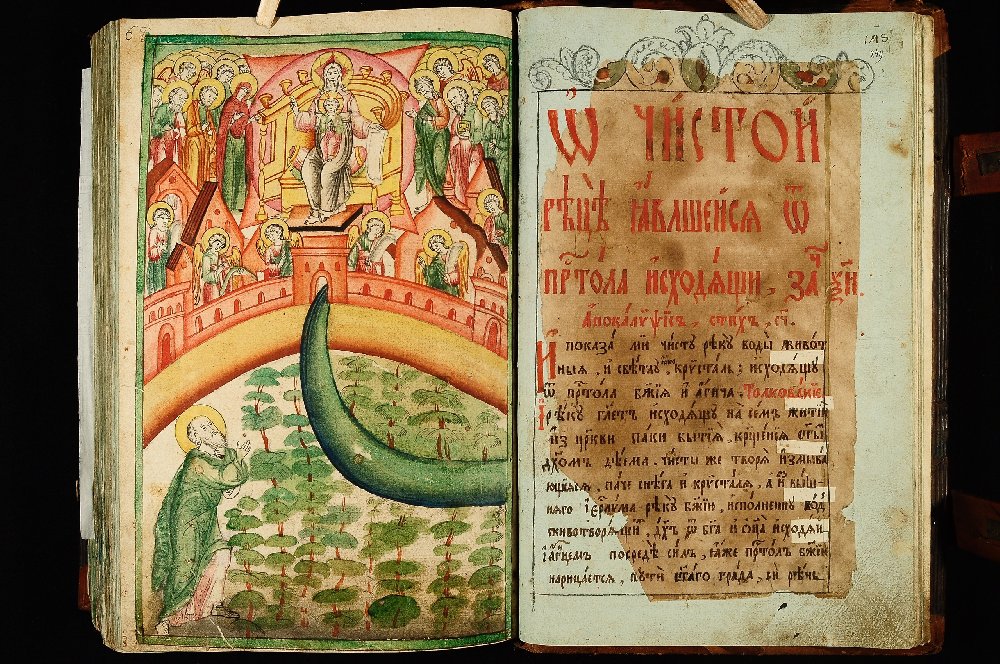 Ѽ чи́стой
рѣцѣ̀ ꙗ҆́вльшейся ѿ
прⷭ҇то́ла и҆сходѧ́щи. заⷱ҇
А҆покалѵ́ѱисъ, стихъ,
И҆ показа́ ми чи́сту рѣкꙋ̀ воды̀ живот
ныѧ, и҆ свѣ́тлꙋ, ꙗкѡ крꙋста́лъ: исходѧ́щꙋ
ѿ прⷭ҇то́ла бж҃їѧ и҆ а҆́гнча. Толкова́нїе
рѣкꙋ гл҃етъ исходѧ́щꙋ на семъ житїи
из цр҃кви паки бытїѧ̀, крⷭ҇щенїѧ ст҃ы
дх҃омъ дѣема. чи́сты же творѧ̀ и҆змыва
ющиѧсѧ, па́че снѣ́га и҆ крꙋста́лѧ, а҆
нѧго і҆ер҃лма рѣкꙋ бж҃їю, и҆спо́лненꙋ во́д
животворѧ́щи, дх҃ъ ѿ бг҃а и҆ ѻц҃а и҆сходѧ́
посредѣ̀ силъ, ꙗ҆́же прⷭ҇то́лъ бж҃їй
нарица́етсѧ, пꙋти̑ ст҃а́го гра́да,